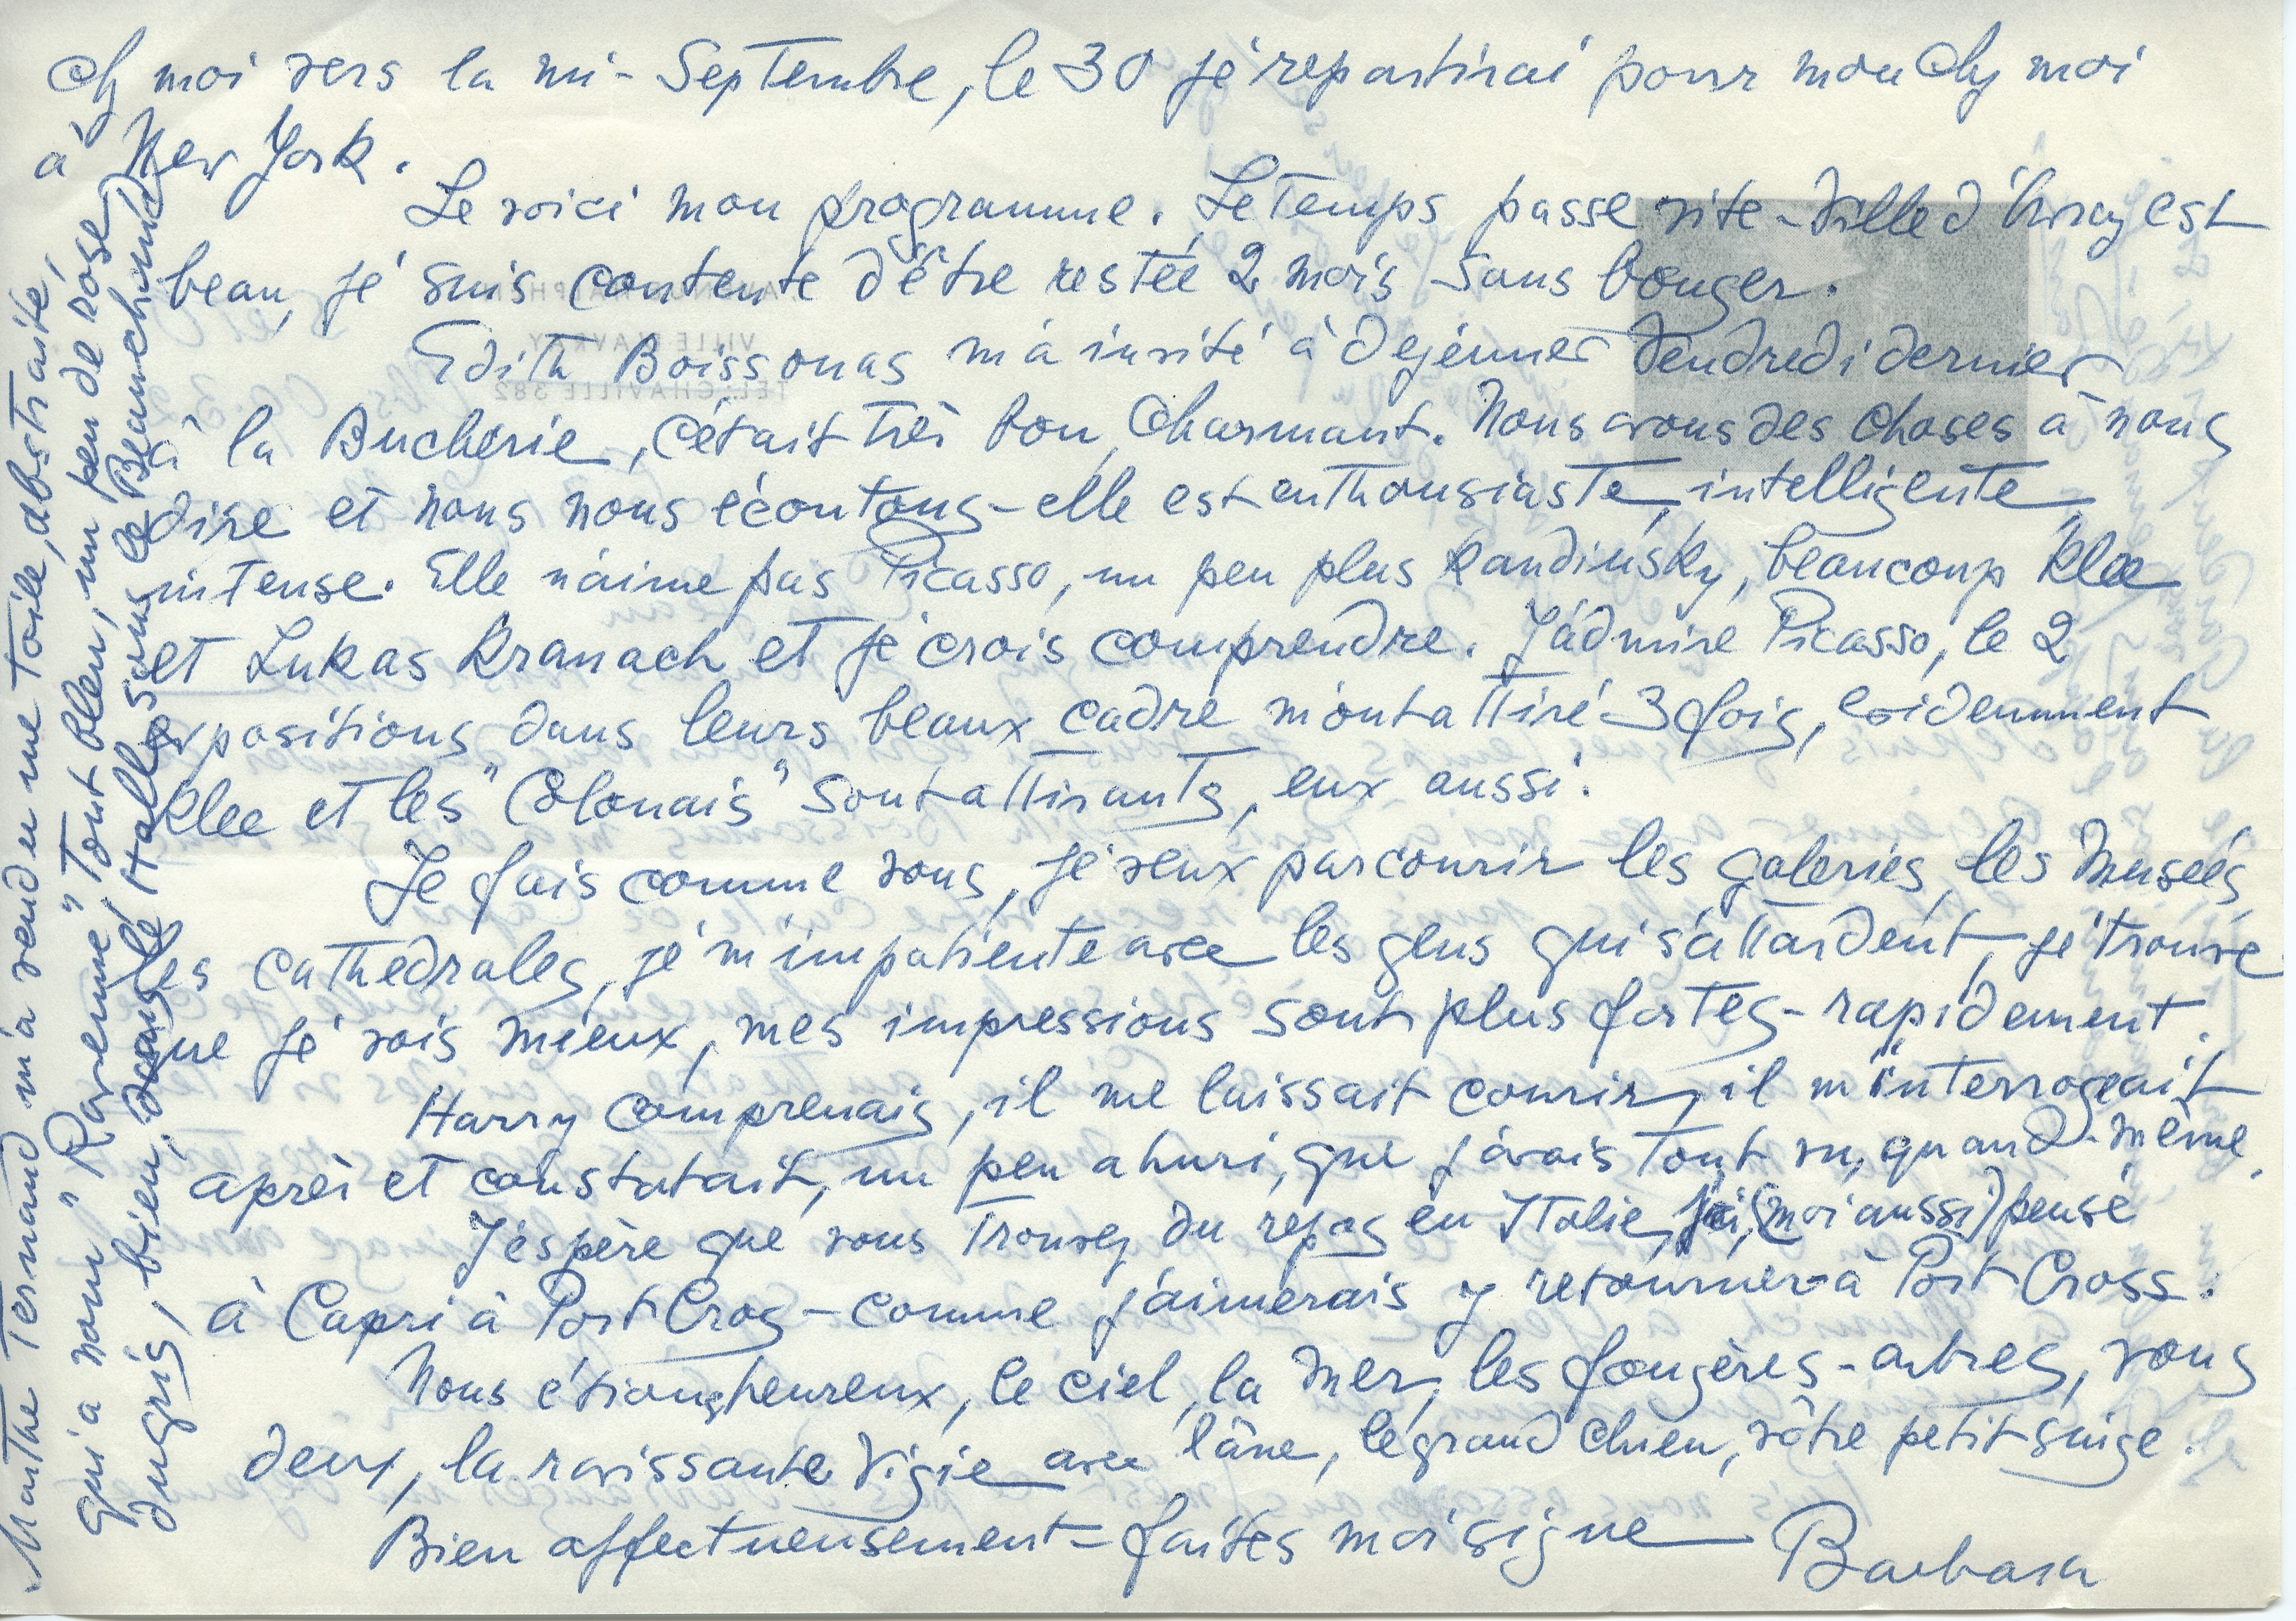 chz moi vers la mi-Septembre, le 30 je repartirai pour mon chz moi
à New York.
Le voici mon programme. Le Temps passe vite - Ville d'Avray est
beau, je suis contente d'être restée 2 mois sans bouger.
Edith Boissonas m'a invité à dejeuner Vendredi dernier
à la Bucherie, c'était très bon, Charmant. Nous avons des choses à nous
dire et nous nous écoutons - elle est enthousiaste, intelligente,
intense. Elle n'aime pas Picasso, un peu plus Kandinsky, beaucoup Klee
et Lukas Kranach et je crois comprendre. J'admire Picasso, le 2
expositions dans leurs beaux cadre m'ont attiré 3 fois, evidemment
Klee et les "Colonais" sont attirants, eux aussi.
Je fais comme vous, je veux parcourir les galeries, les Museés,
les cathedrales, je m'impatiente avec les gens qui s'attardent, je trouve
que je vois mieux, mes impressions sont plus fortes - rapidement.
Harry comprenais, il me laissait courir, il m'interrogeait
après et constatait, un peu ahuri, que j'avais tout vu, quand-même.
J'espère que vous trouvez du repos en Italie, j'ai, (moi aussi) pensé
à Capri à Port Cros - comme j'aimerais y retourner à Port Cross.
Nous étions heureux, le ciel, la mer, les fougères-arbres, vous
deux, la ravissante Vigie avec l'âne, le grand chien, vôtre petit singe.
Bien affectueusement - faites moi signe Barbara
Marthe Ternand m'a vendu une toile, abstraite,
qui a nom "Ravenne" Tout bleu, un peu de rose,
du gris, bien, dans le Hall, sous le Beauchamp